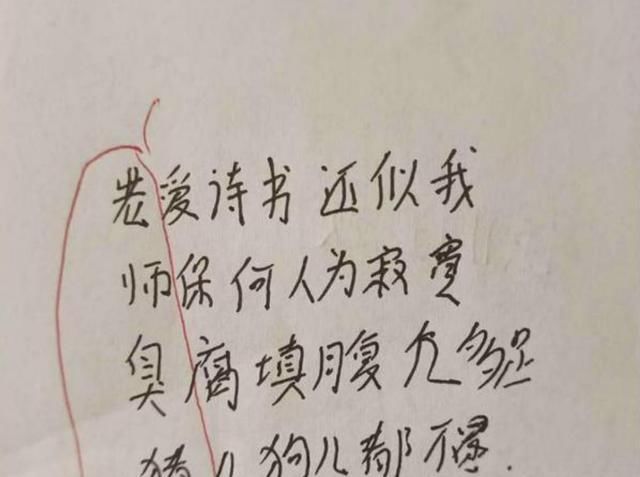 老爱诗书还似我
师保何人为寂
臭腐填腹
猪儿狗儿都不